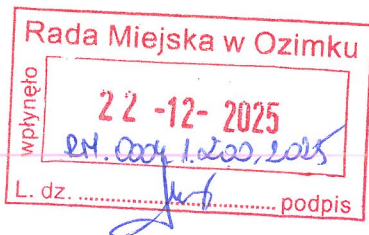 Rada Miejska w Ozimku
wpłynęło
22 -12- 2025
RM. 0004.1.200.2025
L. dz. ........................................ podpis